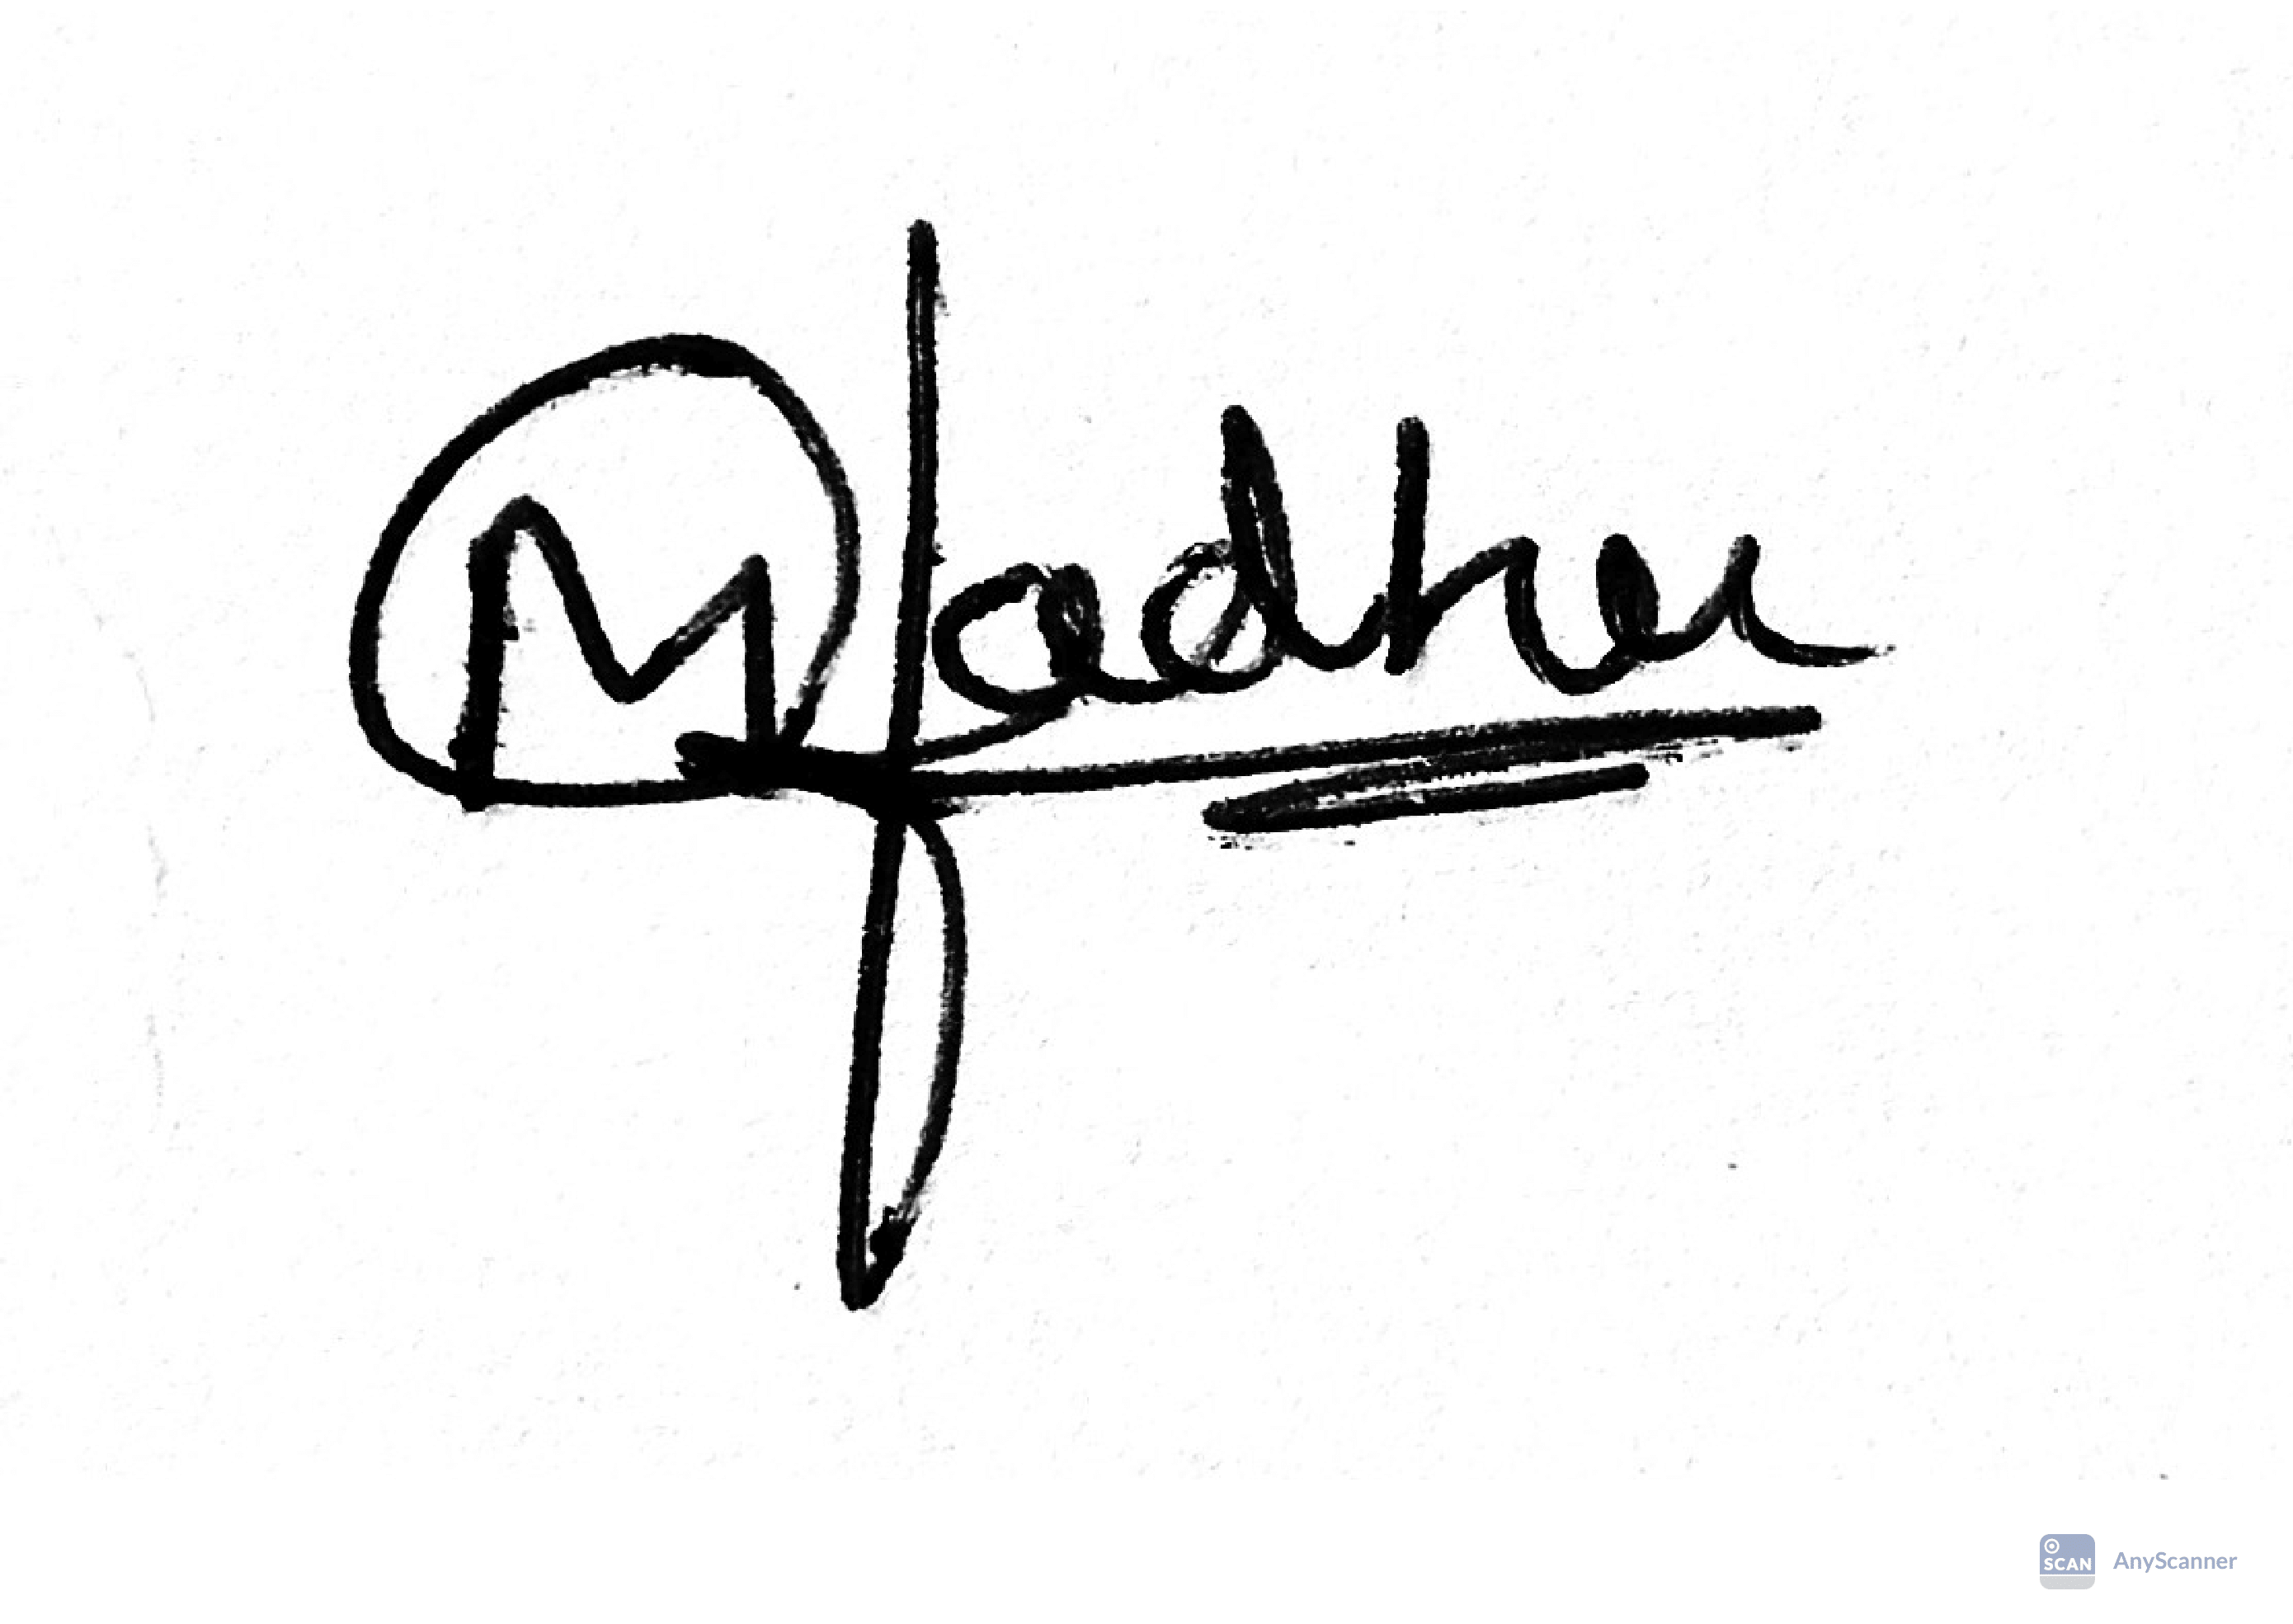 Madhu
SCAN AnyScanner